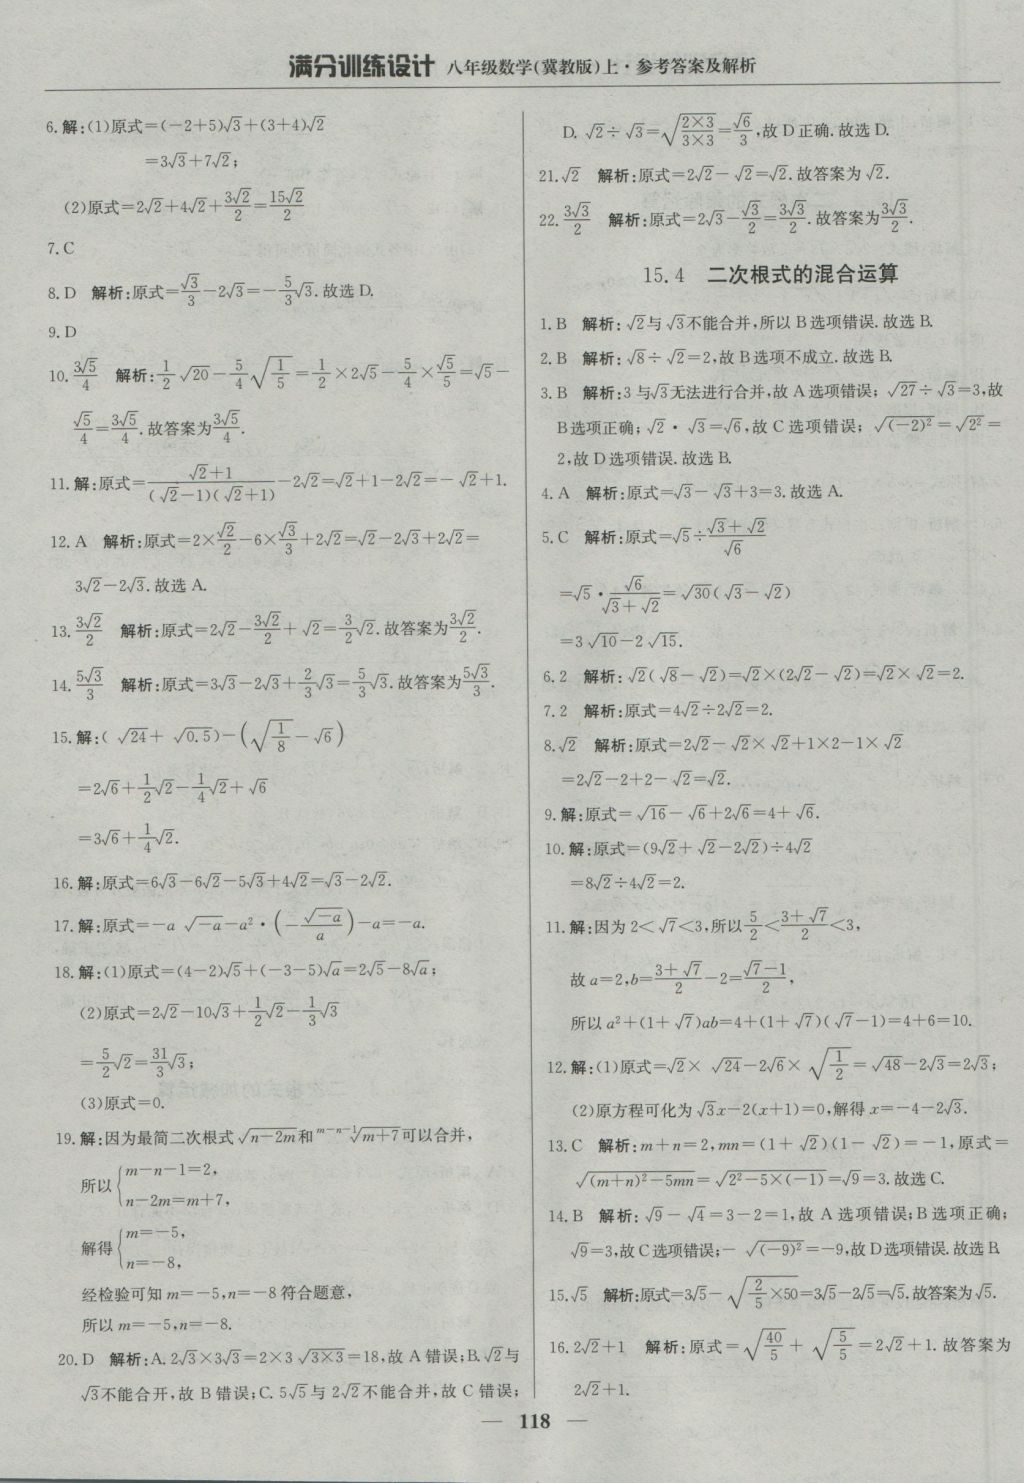 满分训练设计 八年级数学(冀教版)上·参考答案及解析
6.解:(1)原式=(−2+5)√3+(3+4)√2
=3√3+7√2;
(2)原式=2√2+4√2+3√2/2=15√2/2
7.C
8.D 解析:原式=√3/3−2√3=−5/3√3.故选D.
9.D
10.3√5/4 解析:1/2√20−5/4√(1/5)=1/2×2√5−5/4×√5/5=√5−
√5/4=3√5/4.故答案为3√5/4.
11.解:原式=(√2+1)/((√2−1)(√2+1))−2√2=√2+1−2√2=−√2+1.
12.A 解析:原式=2×√2/2−6×√3/3+2√2=√2−2√3+2√2=
3√2−2√3.故选A.
13.3√2/2 解析:原式=2√2−3√2/2+√2=3/2√2.故答案为3√2/2.
14.5√3/3 解析:原式=3√3−2√3+2/3√3=5/3√3.故答案为5√3/3.
15.解:(√24+√0.5)−(√(1/8)−√6)
=2√6+1/2√2−1/4√2+√6
=3√6+1/4√2.
16.解:原式=6√3−6√2−5√3+4√2=√3−2√2.
17.解:原式=−a√(−a)−a²·(−√(−a)/a)−a=−a.
18.解:(1)原式=(4−2)√5+(−3−5)√a=2√5−8√a;
(2)原式=2√2−10√3+1/2√2−1/3√3
=5/2√2=31/3√3;
(3)原式=0.
19.解:因为最简二次根式√(n−2m)和 ᵐ⁻ⁿ⁻¹√(m+7)可以合并,
所以{m−n−1=2,
n−2m=m+7,
解得{m=−5,
n=−8,
经检验可知m=−5,n=−8符合题意,
所以m=−5,n=−8.
20.D 解析:A.2√3×3√3=2×3√(3×3)=18,故A错误;B.√2与
√3不能合开,故B错误;C.5√5与2√2不能合并,故C错误;
D.√2÷√3=√((2×3)/(3×3))=√6/3,故D正确.故选D.
21.√2 解析:原式=2√2−√2=√2.故答案为√2.
22.3√3/2 解析:原式=2√3−√3/2=3√3/2.故答案为3√3/2.
15.4 二次根式的混合运算
1.B 解析:√2与√3不能合并,所以B选项错误.故选B.
2.B 解析:√8÷√2=2,故B选项不成立.故选B.
3.B 解析:3与√3无法进行合并,故A选项错误;√27÷√3=3,故
B选项正确;√2·√3=√6,故C选项错误;√((−2)²)=√(2²)=
2,故D选项错误.故选B.
4.A 解析:原式=√3−√3+3=3.故选A.
5.C 解析:原式=√5÷(√3+√2)/√6
=√5·√6/(√3+√2)=√30(√3−√2)
=3√10−2√15.
6.2 解析:√2(√8−√2)=√2×(2√2−√2)=√2×√2=2.
7.2 解析:原式=4√2÷2√2=2.
8.√2 解析:原式=2√2−√2×√2+1×2−1×√2
=2√2−2+2−√2=√2.
9.解:原式=√16−√6+2√6=4+√6.
10.解:原式=(9√2+√2−2√2)÷4√2
=8√2÷4√2=2.
11.解:因为2<√7<3,所以5/2<(3+√7)/2<3,
故a=2,b=(3+√7)/2−2=(√7−1)/2,
所以a²+(1+√7)ab=4+(1+√7)(√7−1)=4+6=10.
12.解:(1)原式=√2×√24−2√6×√(1/2)=√48−2√3=2√3;
(2)原方程可化为√3x−2(x+1)=0,解得x=−4−2√3.
13.C 解析:m+n=2,mn=(1+√2)(1−√2)=−1,原式=
√((m+n)²−5mn)=√(2²−5×(−1))=√9=3.故选C.
14.B 解析:√9−√4=3−2=1,故A选项错误;B选项正确;
√9=3,故C选项错误;−√((−9)²)=−9,故D选项错误.故选B
15.√5 解析:原式=3√5−√(2/5×50)=3√5−2√5=√5.故答案为√5.
16.2√2+1 解析:原式=√(40/5)+√(5/5)=2√2+1.故答案为
2√2+1.
— 118 —